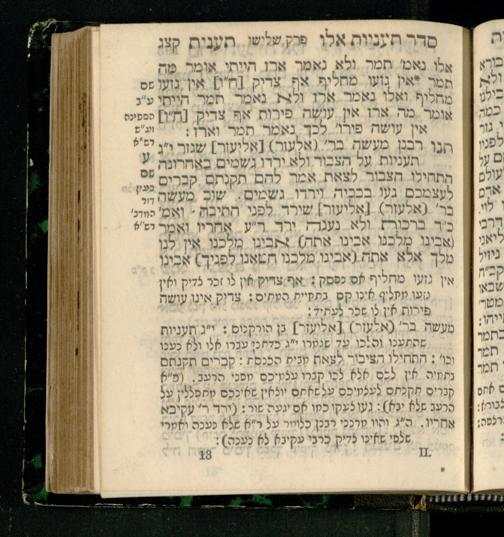 סדר תעניות אלו פרק שלישי תענית קצג
אלו נאמ׳ תמר ולא נאמר ארז הייתי אומר מה
תמר *אין גזעו מחליף אף צדיק [ח״ו] אין גזעו
מחליף ואלו נאמר ארז ולא נאמר תמר הייתי
אומר מה ארז אין עושה פירות אף צדיק [ח״ו]
אין עושה פירו׳ לכך נאמר תמר וארז :
תנו רבנן מעשה בר׳ (אלעזר) [אליעזר] שגזר י״ג
תעניות על הצבור ולא ירדו גשמים באחרונה
התחילו הצבור לצאת אמר להם תקנתם קברים
לעצמכם געו בבכיה וירדו גשמים. שוב מעשה
בר׳ (אלעזר) [אליעזר] שירד לפני התיבה ואמ׳
כ״ד ברכות ולא נענה ירד ר״ע אחריו ואמר
(אבינו מלכנו אבינו אתה) אבינו מלכנו אין לנו
מלך אלא אתה (אבינו מלכנו חטאנו לפניך) אבינו
אין גזעו מחליף אם נפסק : אף צדיק אין לו זכר לדיק ואין
גזעו מחליף אינו קם בתחיית המתים : צדיק אינו עושה
פירות אין לו שכר לעתיד :
מעשה בר׳ (אלעזר) [אליעזר] בן הורקנוס : י״ג תעניות
שהתענו והלכו עד שגזרו י״ג כדתנן עברו אלו ולא נענו
וכו׳ : התחילו הציבור לצאת מבית הכנסת : קברים תקנתם
בתמיה אין לכם אלא לכו קברו עצמיכם מפני הרעב. (ס״א
קברים תקנתם לעצמיכם
הרעב שלא יבא) : געו לעקו כמו אם יגעה שור : (ירד ר׳ עקיבא
אחריו. ה״ג והוו מרנני רבנן כלומר על ר״א שלא נענה ואמרי
שלפי שאינו לדיק כרבי עקיבא לא נענה) :
18 II.
שם
ע״ב